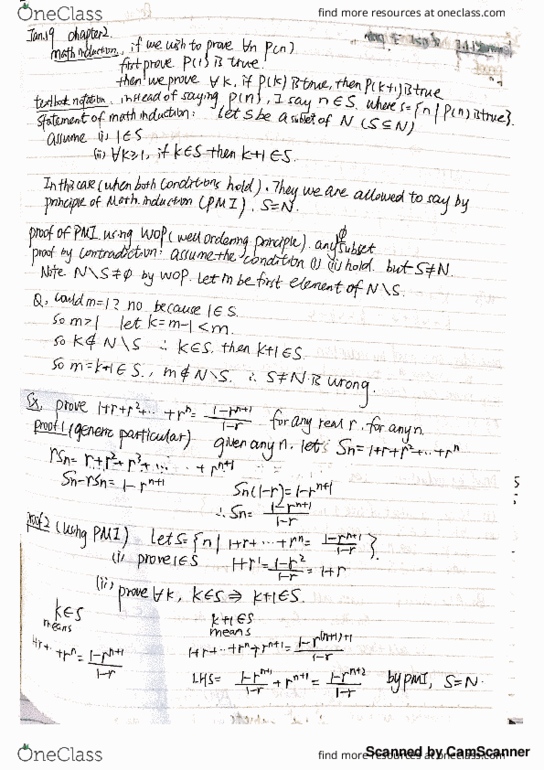 OneClass
find more resources at oneclass.com
Jan.19 chapter2.
math induction, if we wish to prove ∀n P(n)
first prove P(1) is true.
then we prove ∀k, if P(k) is true, then P(k+1) is true
textbook notation. instead of saying P(n), I say n∈S. where S={n | P(n) is true}.
statement of math induction: Let S be a subset of N (S⊆N)
Assume (i) 1∈S
(ii) ∀k≥1, if k∈S then k+1∈S.
In this case (when both conditions hold). They we are allowed to say by
principle of Math. induction (PMI), S=N.
proof of PMI using WOP (well ordering principle). any subset
proof by contradiction: assume the condition (i) (ii) hold. but S≠N.
Note N\S≠∅ by WOP. Let m be first element of N\S.
Q, could m=1? no because 1∈S.
So m>1 let k=m-1<m.
so k∉N\S ∴ k∈S. then k+1∈S.
so m=k+1∈S., m∉N\S. ∴ S≠N is wrong.
Ex, prove 1+r+r²+...+rⁿ = (1-rⁿ⁺¹)/(1-r) for any real r. for any n.
proof1 (generic particular) given any n. let Sn=1+r+r²+...+rⁿ
rSn = r+r²+r³+...+rⁿ⁺¹
Sn-rSn=1-rⁿ⁺¹
Sn(1-r)=1-rⁿ⁺¹
∴ Sn= (1-rⁿ⁺¹)/(1-r)
proof2 (using PMI) Let S={n | 1+r+...+rⁿ = (1-rⁿ⁺¹)/(1-r)}.
(i) prove 1∈S 1+r¹=(1-r²)/(1-r)=1+r
(ii) prove ∀k, k∈S ⇒ k+1∈S.
k∈S
means
1+r+...+rⁿ=(1-rⁿ⁺¹)/(1-r)
k+1∈S
means
1+r+...+rⁿ+rⁿ⁺¹=(1-r⁽ⁿ⁺¹⁾⁺¹)/(1-r)
LHS= (1-rⁿ⁺¹)/(1-r)+rⁿ⁺¹=(1-rⁿ⁺²)/(1-r) by PMI, S=N.
OneClass
find more resources at oneclass.com
Scanned by CamScanner